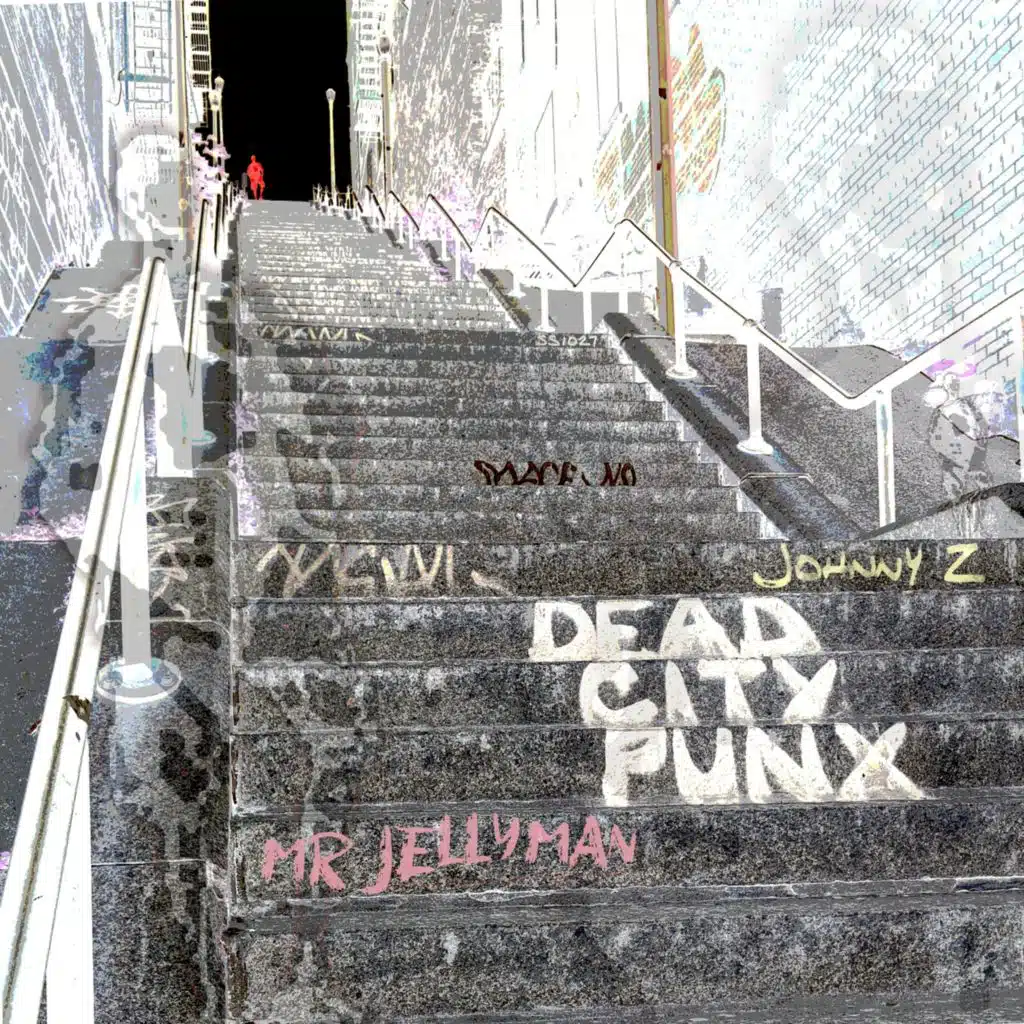 SS1027
JOHNNY Z
DEAD
CITY
PUNX
MR JELLYMAN